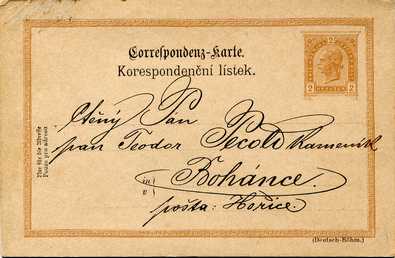 Correspondenz-Karte.
Korespondenční lístek.
2
2 2
Nur für die Adresse
Pouze pro adresu
Ctěný Pán
pan Teodor Pecold Kameník
in
v
Bohánce.
pošta: Hořice.
(Deutsch-Böhm.)